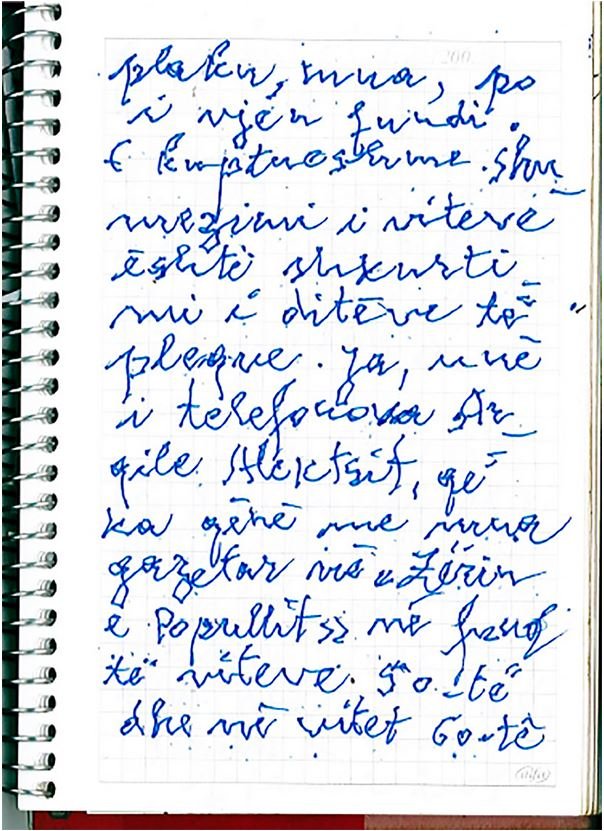 plaku, mua, po
i vjen fundi.
E kuptueshme. Shu
mëzimi i viteve
është shkurti
mi i ditëve të
pleqve. Ja, unë
i telefonova Ar
qile Aleksit, që
ka qënë me mua
gazetar në "Zërin
e Popullit" në fund
të viteve 50-të
dhe në vitet 60-të